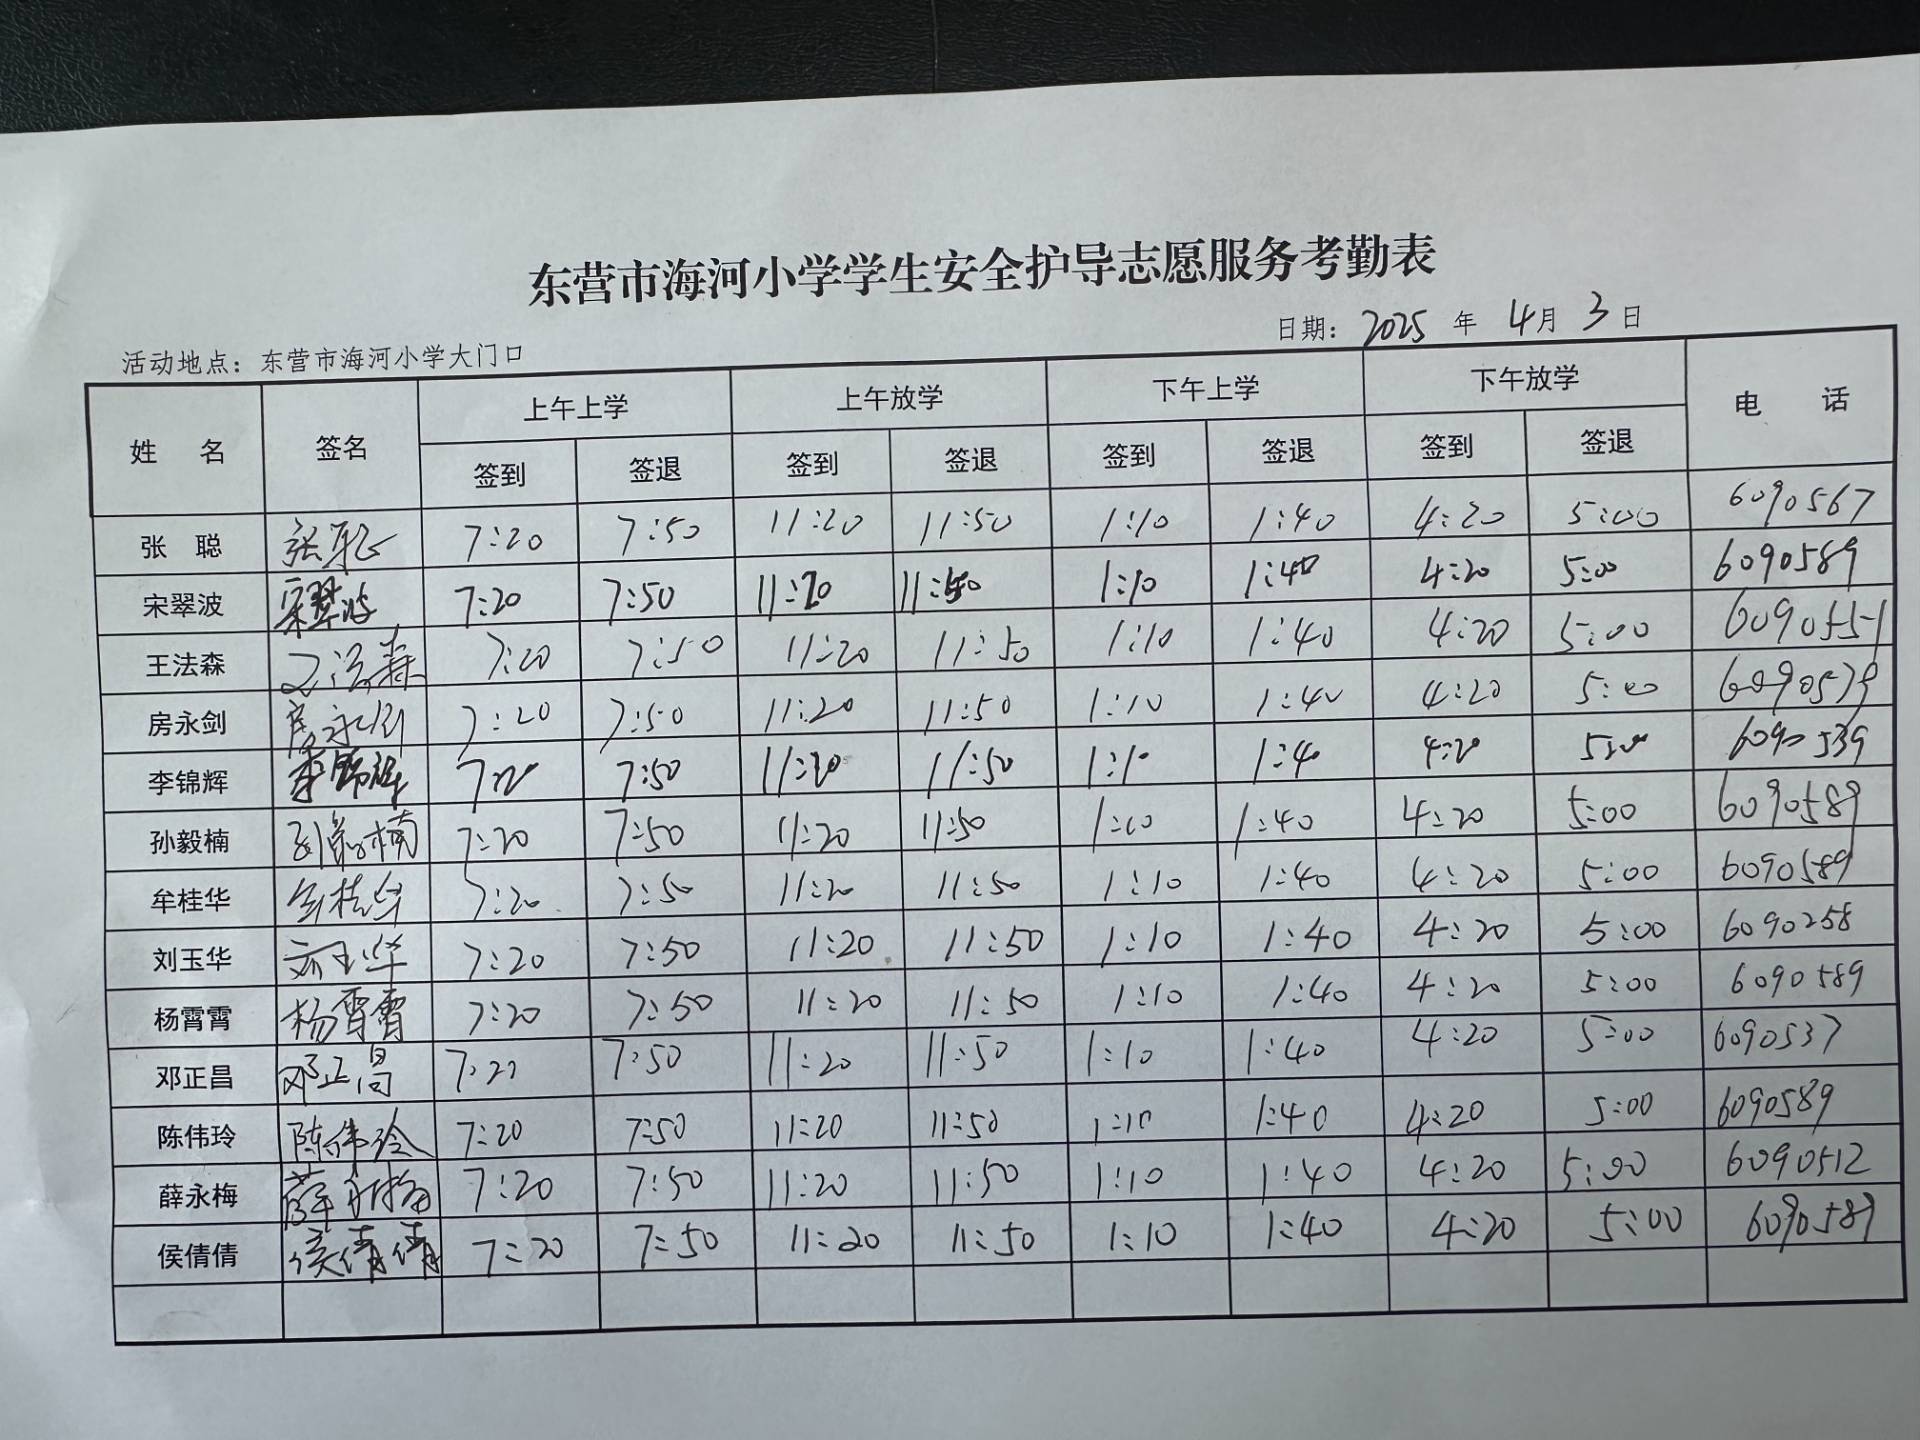 东营市海河小学学生安全护导志愿服务考勤表
活动地点：东营市海河小学大门口 日期：2025 年 4月 3 日
姓 名 签名 上午上学 上午放学 下午上学 下午放学 电 话
签到 签退 签到 签退 签到 签退 签到 签退
张 聪 张聪 7:20 7:50 11:20 11:50 1:10 1:40 4:20 5:00 6090567
宋翠波 宋翠波 7:20 7:50 11:20 11:50 1:10 1:40 4:20 5:00 6090589
王法森 王法森 7:20 7:50 11:20 11:50 1:10 1:40 4:20 5:00 6090551
房永剑 房永剑 7:20 7:50 11:20 11:50 1:10 1:40 4:20 5:00 6090579
李锦辉 李锦辉 7:20 7:50 11:20 11:50 1:10 1:40 4:20 5:00 6090539
孙毅楠 孙毅楠 7:20 7:50 11:20 11:50 1:10 1:40 4:20 5:00 6090589
牟桂华 牟桂华 7:20 7:50 11:20 11:50 1:10 1:40 4:20 5:00 6090589
刘玉华 刘玉华 7:20 7:50 11:20 11:50 1:10 1:40 4:20 5:00 6090258
杨霄霄 杨霄霄 7:20 7:50 11:20 11:50 1:10 1:40 4:20 5:00 6090589
邓正昌 邓正昌 7:20 7:50 11:20 11:50 1:10 1:40 4:20 5:00 6090537
陈伟玲 陈伟玲 7:20 7:50 11:20 11:50 1:10 1:40 4:20 5:00 6090589
薛永梅 薛永梅 7:20 7:50 11:20 11:50 1:10 1:40 4:20 5:00 6090512
侯倩倩 侯倩倩 7:20 7:50 11:20 11:50 1:10 1:40 4:20 5:00 6090589